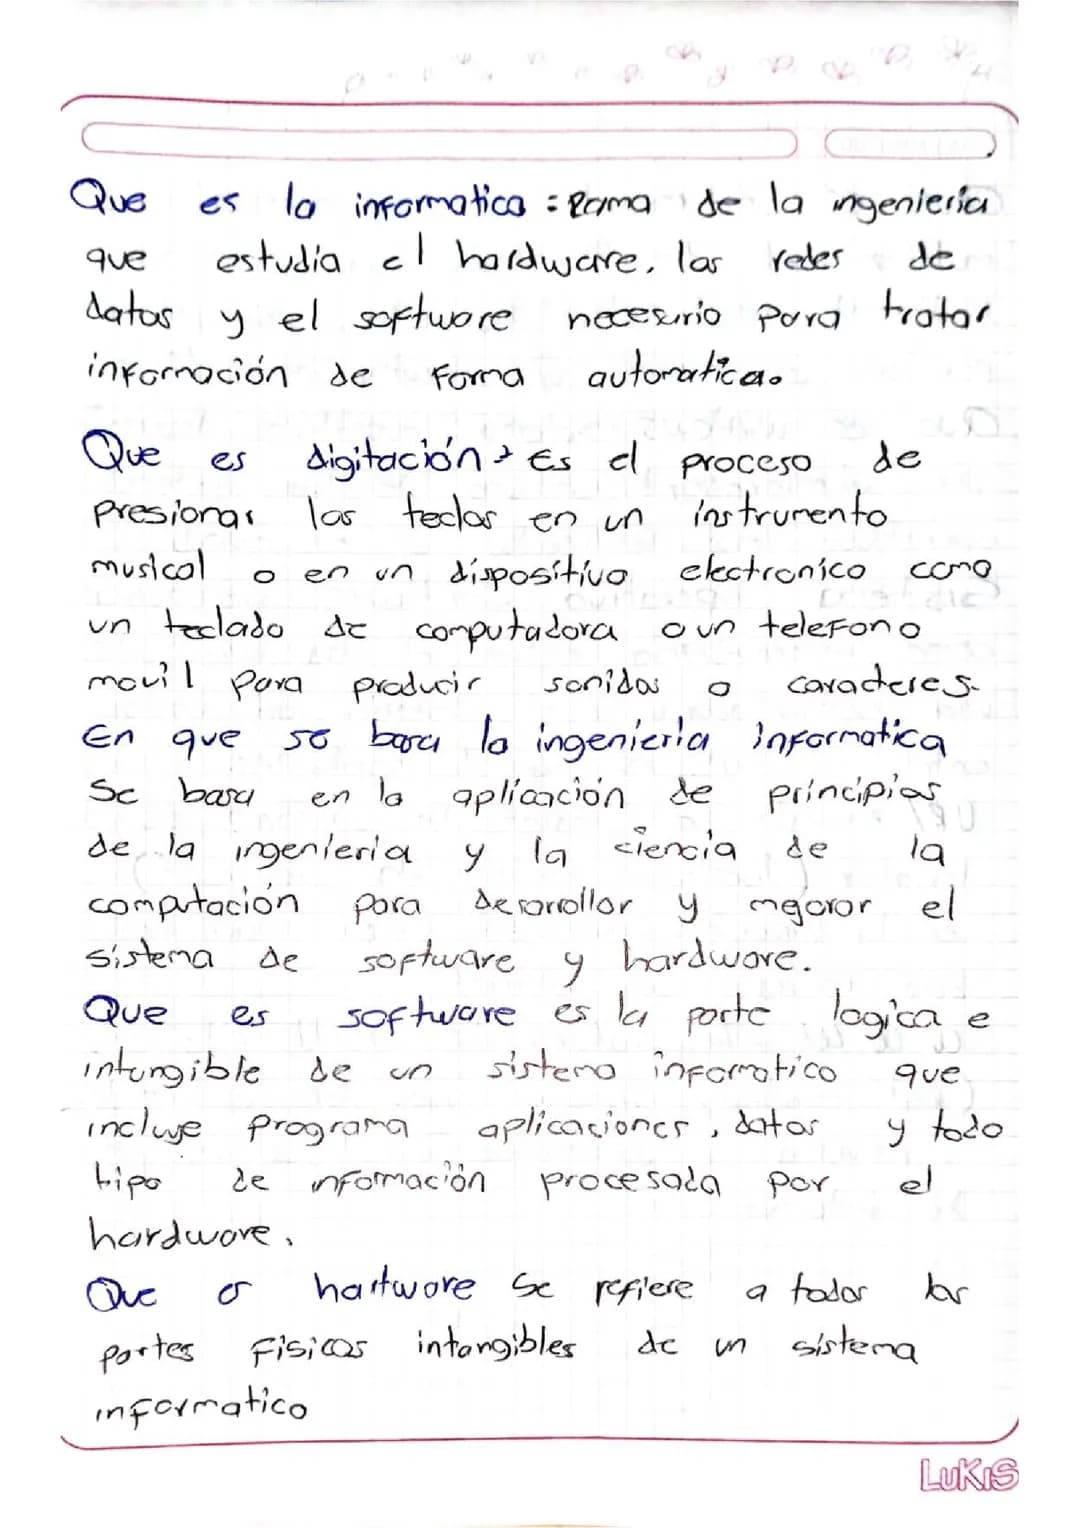 Que es la informatica : Rama de la ingenieria
que estudia el hardware, las redes de
datos y el software necesario para tratar
información de Forma automatica.
Que es digitación → Es el proceso de
presionar las teclas en un instrumento
musical o en un dispositivo electronico como
un teclado de computadora o un teleFono
movil para producir sonidos o caracteres.
En que se basa la ingenieria informatica
Se basa en la aplicación de principios
de la ingenieria y la ciencia de la
computación para desarrollar y mejorar el
sistema de software y hardware.
Que es software es la parte logica e
intangible de un sistema informatico que
incluye programa aplicaciones, datos y todo
tipo de información procesada por el
hardware.
Que es hartware Se refiere a todas las
partes Fisicas intangibles de un sistema
informatico
LUKIS